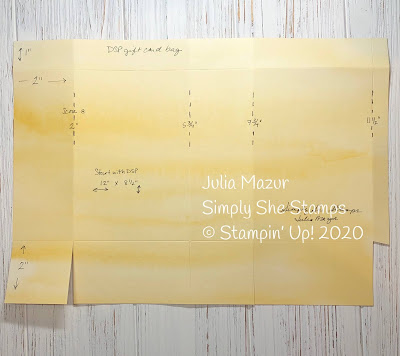 1"
DSP gift card bag
2"
Score @
2"
5 ¾"
7 ¾"
11 ½"
Start with DSP
12" x 8 ½"
Julia Mazur
Simply She Stamps
© Stampin' Up! 2020
Julia Mazur
2"